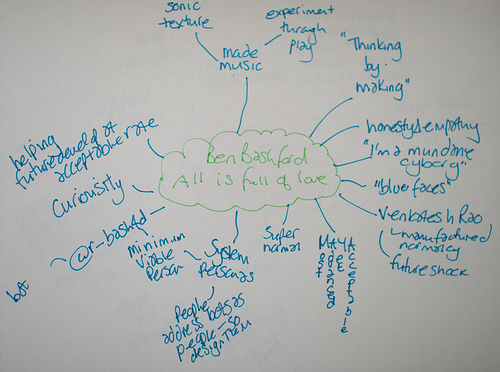 sonic
texture
experiment
through
play
made
music
"Thinking
by
making"
honesty & empathy
"I'm a mundane
cyborg"
"blue faces"
Venkatesh Rao
manufactured
normalcy
future shock
Ben Bashford
All is full of love
helping
future
at
acceptable rate
Curiousity
@r-bashfd
bot
Minimum
Viable
Person
System
Personas
People
address bots as
people - so
design them
Super
normal
MAYA
Most
Advanced
Yet
Acceptable